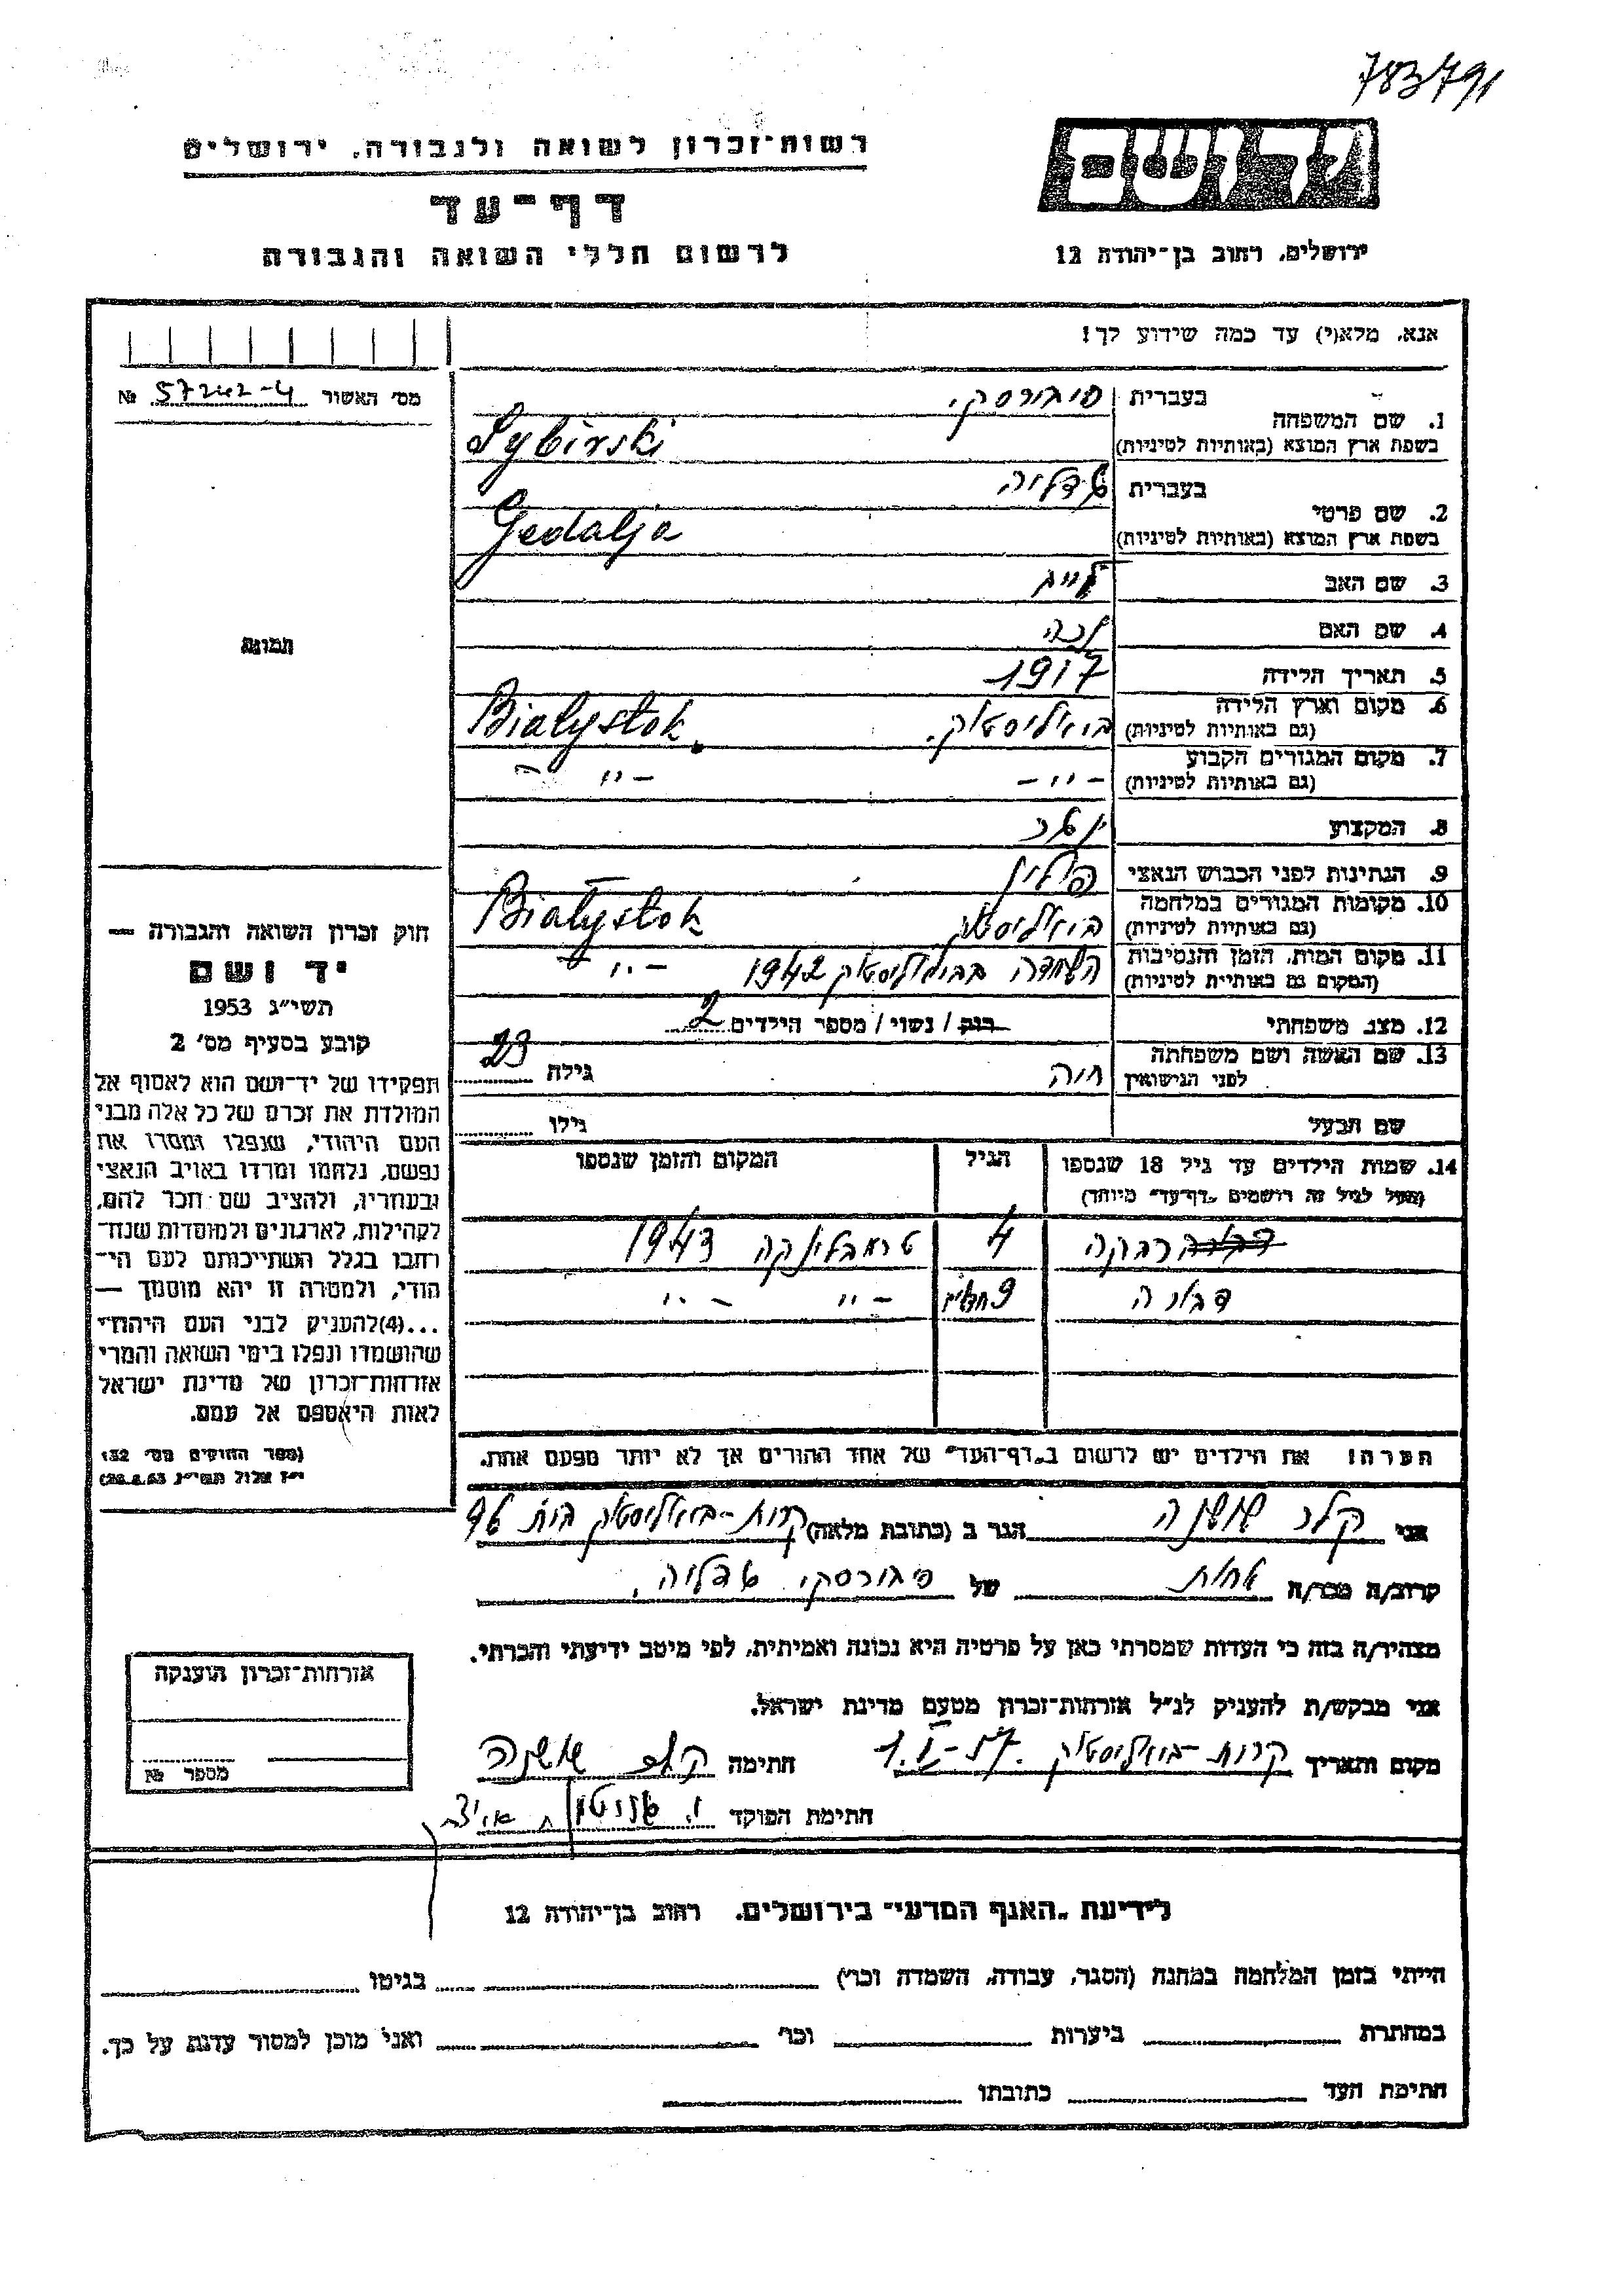 783791
רשות־זכרון לשואה ולגבורה, ירושלים
דף־עד
לרשום חללי השואה והגבורה
ידושם
ירושלים, רחוב בן־יהודה 12
אנא, מלא(י) עד כמה שידוע לך!
מס׳ האשור 57242-4 №
תמונה
1. שם המשפחה
בעברית סיבירסקי.
בשפת ארץ המוצא (באותיות לטיניות) Sybirski
2. שם פרטי
בעברית גדליה
בשפת ארץ המוצא (באותיות לטיניות) Gedalja
3. שם האב לייב
4. שם האם
5. תאריך הלידה 1917
6. מקום וארץ הלידה ביאליסטוק. Bialystok.
(גם באותיות לטיניות)
7. מקום המגורים הקבוע -"- -"-
(גם באותיות לטיניות)
8. המקצוע
9. הנתינות לפני הכבוש הנאצי פולין
10. מקומות המגורים במלחמה ביאליסטוק Białystok
(גם באותיות לטיניות)
11. מקום המות, הזמן והנסיבות השמדה בביאליסטוק 1942 -"-
(המקום גם באותיות לטיניות)
12. מצב משפחתי רוק / נשוי / מספר הילדים 2
13. שם האשה ושם משפחתה חיה גילה 23
לפני הנישואין
שם הבעל גילו
14. שמות הילדים עד גיל 18 שנספו הגיל המקום והזמן שנספו
(מעל לגיל זה רושמים „דף־עד״ מיוחד)
רבקה 4 טרבלינקה 1943
9 חדשים -"- -"-
הערה: את הילדים יש לרשום ב„דף־העד״ של אחד ההורים אך לא יותר מפעם אחת.
חוק זכרון השואה והגבורה —
יד ושם
תשי״ג 1953
קובע בסעיף מס׳ 2
תפקידו של יד־ושם הוא לאסוף אל
המולדת את זכרם של כל אלה מבני
העם היהודי, שנפלו ומסרו את
נפשם, נלחמו ומרדו באויב הנאצי
ובעוזריו, ולהציב שם וזכר להם,
לקהילות, לארגונים ולמוסדות שנח־
רבו בגלל השתייכותם לעם הי־
הודי, ולמטרה זו יהא מוסמך —
...(4)להעניק לבני העם היהודי
שהושמדו ונפלו בימי השואה והמרי
אזרחות־זכרון של מדינת ישראל
לאות היאספם אל עמם.
(ספר החוקים מס׳ 132
י״ז אלול תשי״ג 28.8.53)
אני קלר שושנה הגר ב (כתובת מלאה) קרית-ביאליסטוק בית 46
קרוב/ה מכר/ה אחות של סיבירסקי גדליה.
מצהיר/ה בזה כי העדות שמסרתי כאן על פרטיה היא נכונה ואמיתית, לפי מיטב ידיעתי והכרתי.
אני מבקש/ת להעניק לנ״ל אזרחות־זכרון מטעם מדינת ישראל.
מקום ותאריך קרית-ביאליסטוק חתימה קלר שושנה
חתימת הפוקד
אזרחות־זכרון הוענקה
מספר №
לידיעת „האגף המדעי״ בירושלים, רחוב בן־יהודה 12
הייתי בזמן המלחמה במחנה (הסגר, עבודה, השמדה וכו׳) בגיטו
במחתרת ביערות וכו׳ ואני מוכן למסור עדות על כך.
חתימת העד כתובתו